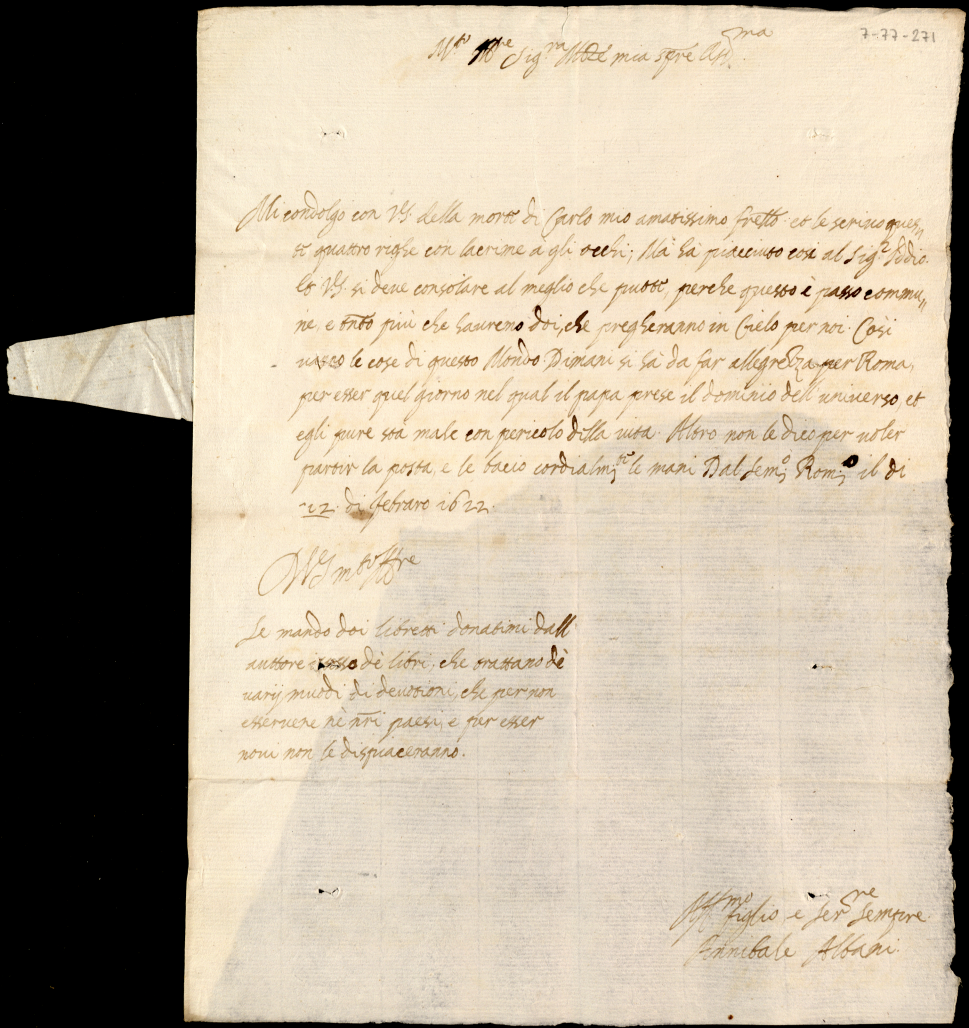 7-77-271
M.to Ill.re Sig.ra Madre mia sp̄re Oss.ma
Mi condolgo con VS. della morte di Carlo mio amatissimo fretto. et le scrivo ques„
te quattro righe con lacrime a gli occhi; Mà hà piacciuto cosi al Sig.r Iddio.
Et VS. si deve consolare al meglio che puote, perche questo è passo commu„
ne, e tnto più che hauremo doi, che pregheranno in Cielo per noi. Così
vanno le cose di questo Mondo Dimani si hà da far allegrezza per Roma,
per esser quel giorno nel qual il papa prese il dominio dell universo, et
egli pure stà male con pericolo della vita. Altro non le dico per voler
partir la posta, e le bacio cordialm.te le mani Dal Sem.o Rom.o il di
12. di febraro 1622.
D VS m.to Ill.re
Le mando doi libretti donatimi dall
auttore istesso de libri, che trattano dè
varij muodi di devotioni, che per non
esservene nè nr̄i paesi, e per esser
novi non le dispiaceranno.
Aff.mo figlio, e Ser.re sempre
Annibale Albani